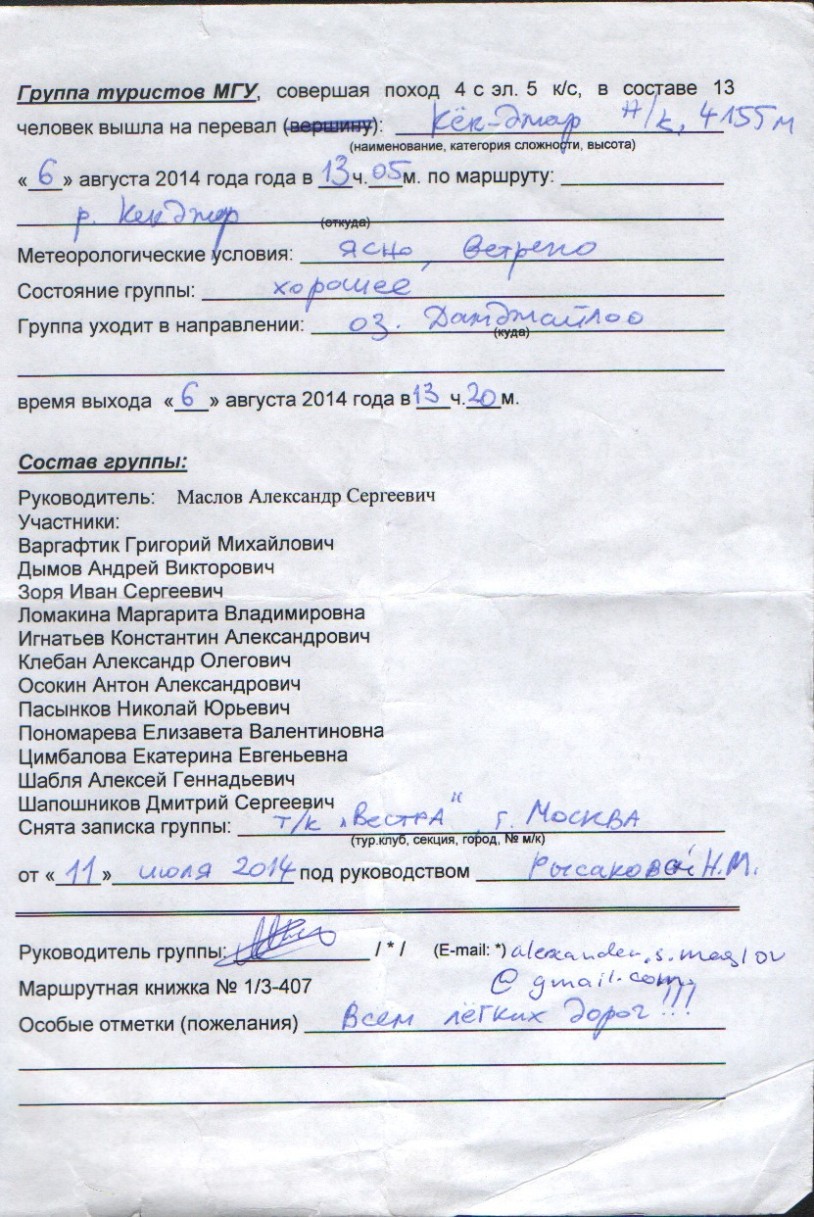 Группа туристов МГУ, совершая поход 4 с эл. 5 к/с, в составе 13
человек вышла на перевал (вершину): Кёк-джар н/к, 4155м
(наименование, категория сложности, высота)
«6» августа 2014 года года в 13ч.05м. по маршруту:
р. Кекджар
(откуда)
Метеорологические условия: ясно, ветрено
Состояние группы: хорошее
Группа уходит в направлении: оз. Дамджайлоо
(куда)
время выхода «6» августа 2014 года в 13ч.20м.
Состав группы:
Руководитель: Маслов Александр Сергеевич
Участники:
Варгафтик Григорий Михайлович
Дымов Андрей Викторович
Зоря Иван Сергеевич
Ломакина Маргарита Владимировна
Игнатьев Константин Александрович
Клебан Александр Олегович
Осокин Антон Александрович
Пасынков Николай Юрьевич
Пономарева Елизавета Валентиновна
Цимбалова Екатерина Евгеньевна
Шабля Алексей Геннадьевич
Шапошников Дмитрий Сергеевич
Снята записка группы: т/к „Вестра“ г. Москва
(тур.клуб, секция, город, № м/к)
от «11» июля 2014 под руководством Рысаковой Н.М.
Руководитель группы: / * / (E-mail: *) alexander.s.maslov
@gmail.com
Маршрутная книжка № 1/3-407
Особые отметки (пожелания) Всем лёгких дорог!!!